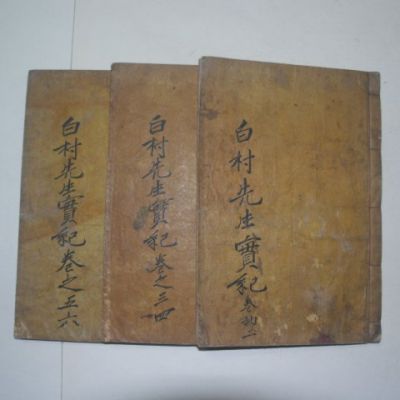 白村先生實紀卷
白村先生實紀卷之三四
白村先生實紀卷之五六